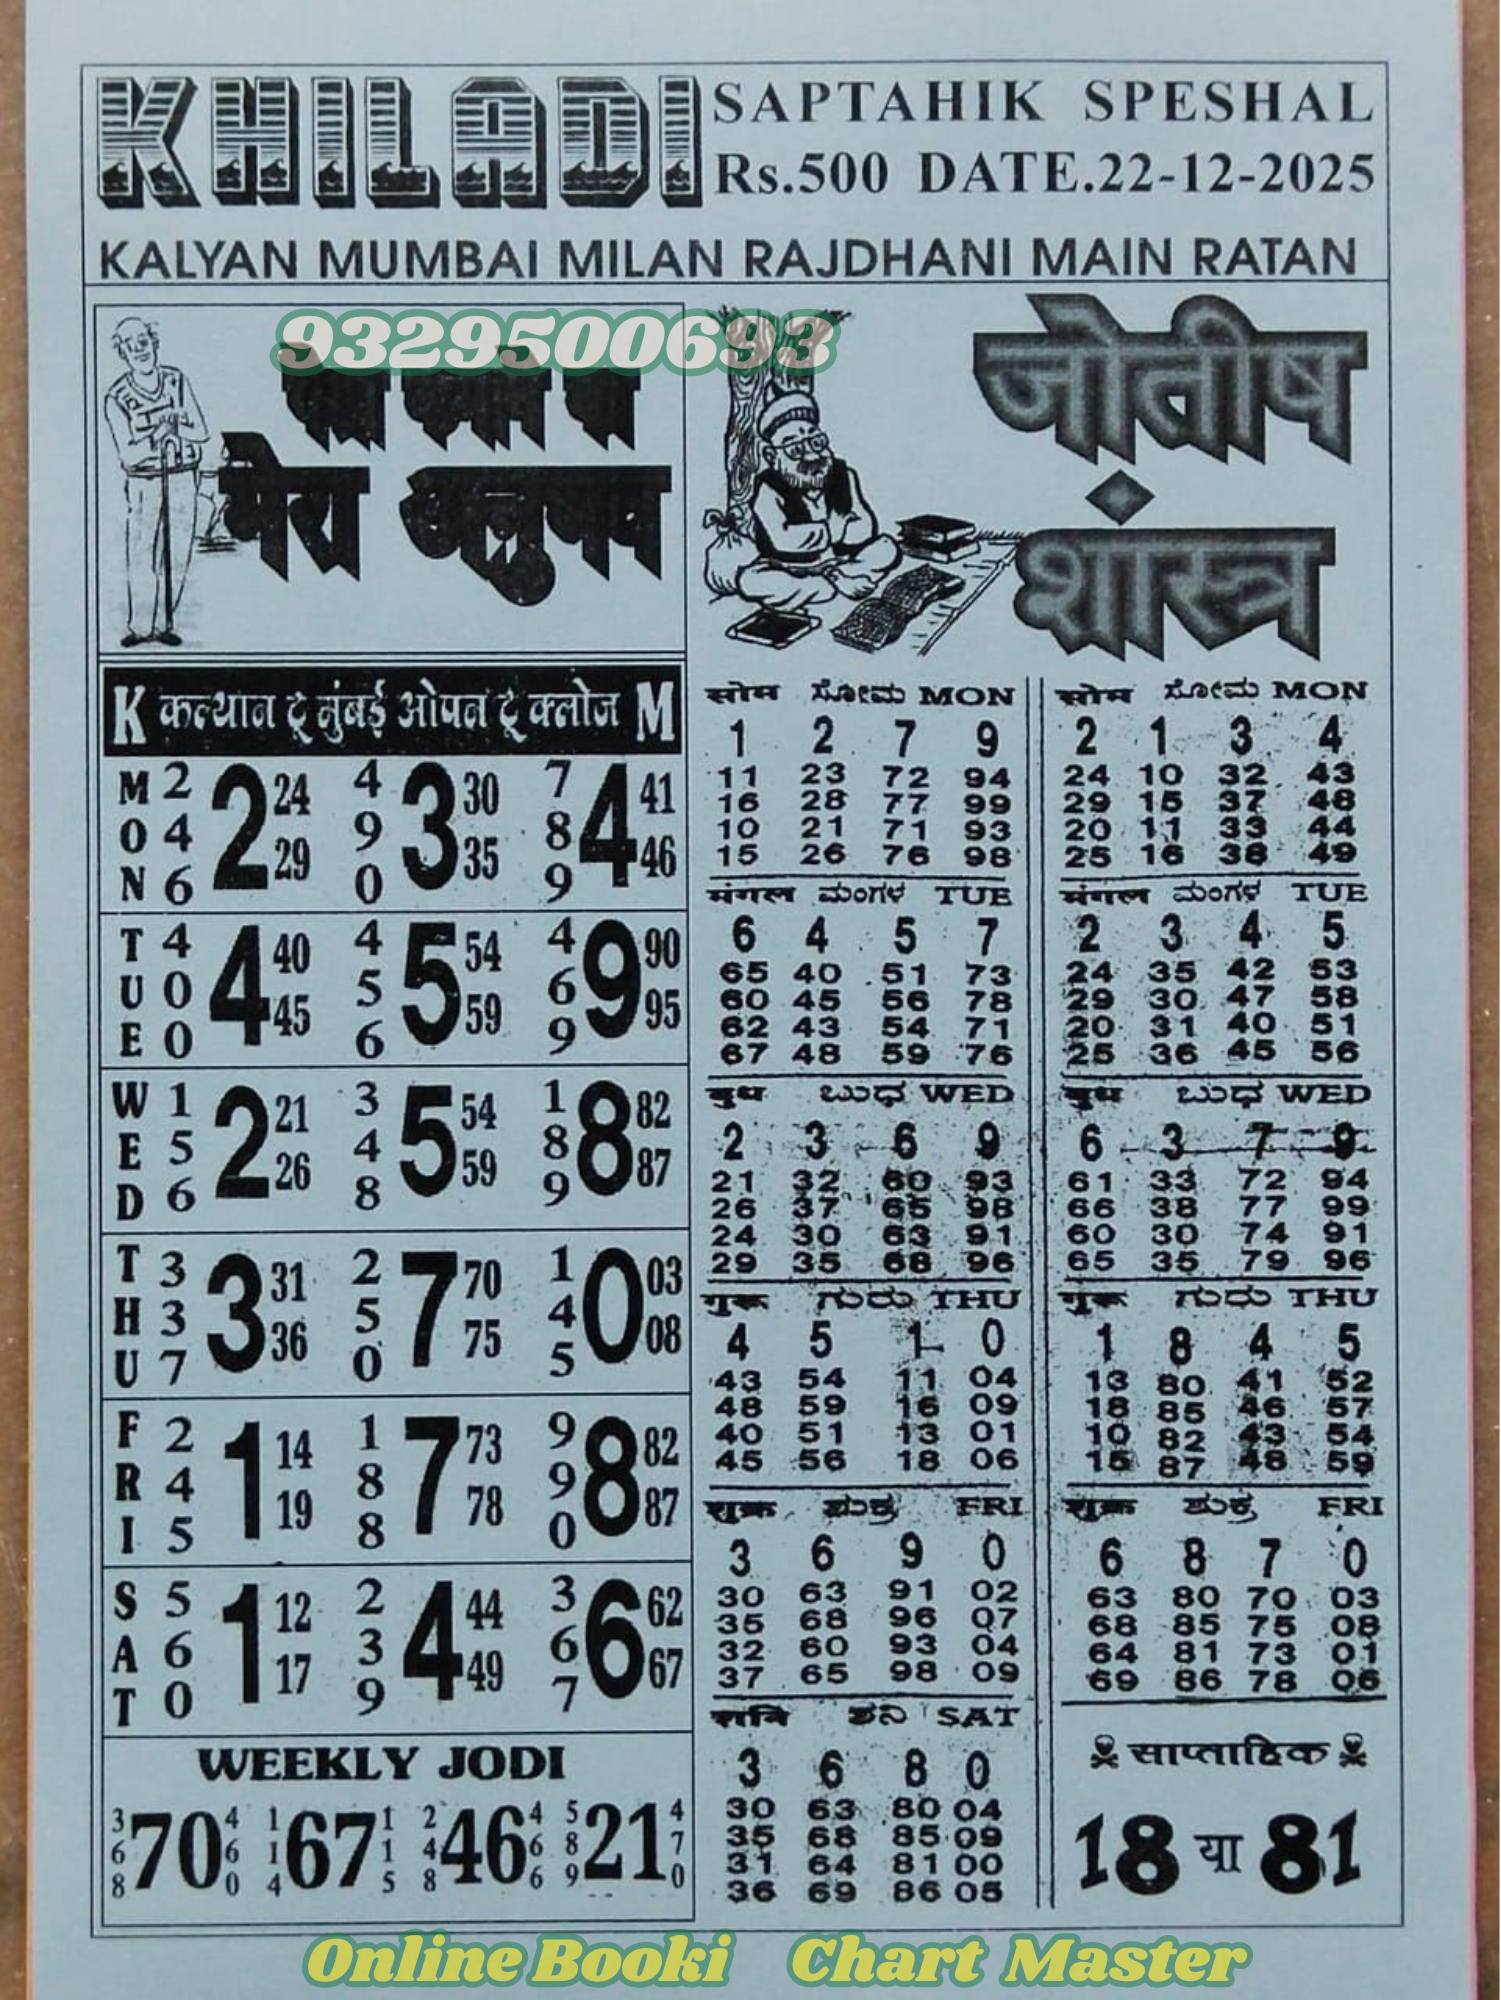 KHILADI
SAPTAHIK SPESHAL
Rs.500 DATE.22-12-2025
KALYAN MUMBAI MILAN RAJDHANI MAIN RATAN
9329500693
मेरा अनुभव
जोतीष
शांस्त्र
K कल्यान टू मुंबई ओपन टू क्लोज M
MON 246 2 24 29 490 3 30 35 789 4 41 46
TUE 400 4 40 45 456 5 54 59 469 9 90 95
WED 156 2 21 26 348 5 54 59 189 8 82 87
THU 337 3 31 36 250 7 70 75 145 0 03 08
FRI 245 1 14 19 188 7 73 78 990 8 82 87
SAT 560 1 12 17 239 4 44 49 367 6 62 67
WEEKLY JODI
368 70 460 114 67 115 248 46 466 589 21 470
सोम ಸೋಮ MON
1 2 7 9
11 23 72 94
16 28 77 99
10 21 71 93
15 26 76 98
मंगल ಮಂಗಳ TUE
6 4 5 7
65 40 51 73
60 45 56 78
62 43 54 71
67 48 59 76
बुध ಬುಧ WED
2 3 6 9
21 32 60 93
26 37 65 98
24 30 63 91
29 35 68 96
गुरू ಗುರು THU
4 5 1 0
43 54 11 04
48 59 16 09
40 51 13 01
45 56 18 06
शुक्र ಶುಕ್ರ FRI
3 6 9 0
30 63 91 02
35 68 96 07
32 60 93 04
37 65 98 09
शनि ಶನಿ SAT
3 6 8 0
30 63 80 04
35 68 85 09
31 64 81 00
36 69 86 05
सोम ಸೋಮ MON
2 1 3 4
24 10 32 43
29 15 37 48
20 11 33 44
25 16 38 49
मंगल ಮಂಗಳ TUE
2 3 4 5
24 35 42 53
29 30 47 58
20 31 40 51
25 36 45 56
बुध ಬುಧ WED
6 3 7 9
61 33 72 94
66 38 77 99
60 30 74 91
65 35 79 96
गुरू ಗುರು THU
1 8 4 5
13 80 41 52
18 85 46 57
10 82 43 54
15 87 48 59
शुक्र ಶುಕ್ರ FRI
6 8 7 0
63 80 70 03
68 85 75 08
64 81 73 01
69 86 78 06
साप्ताहिक
18 या 81
Online Booki Chart Master